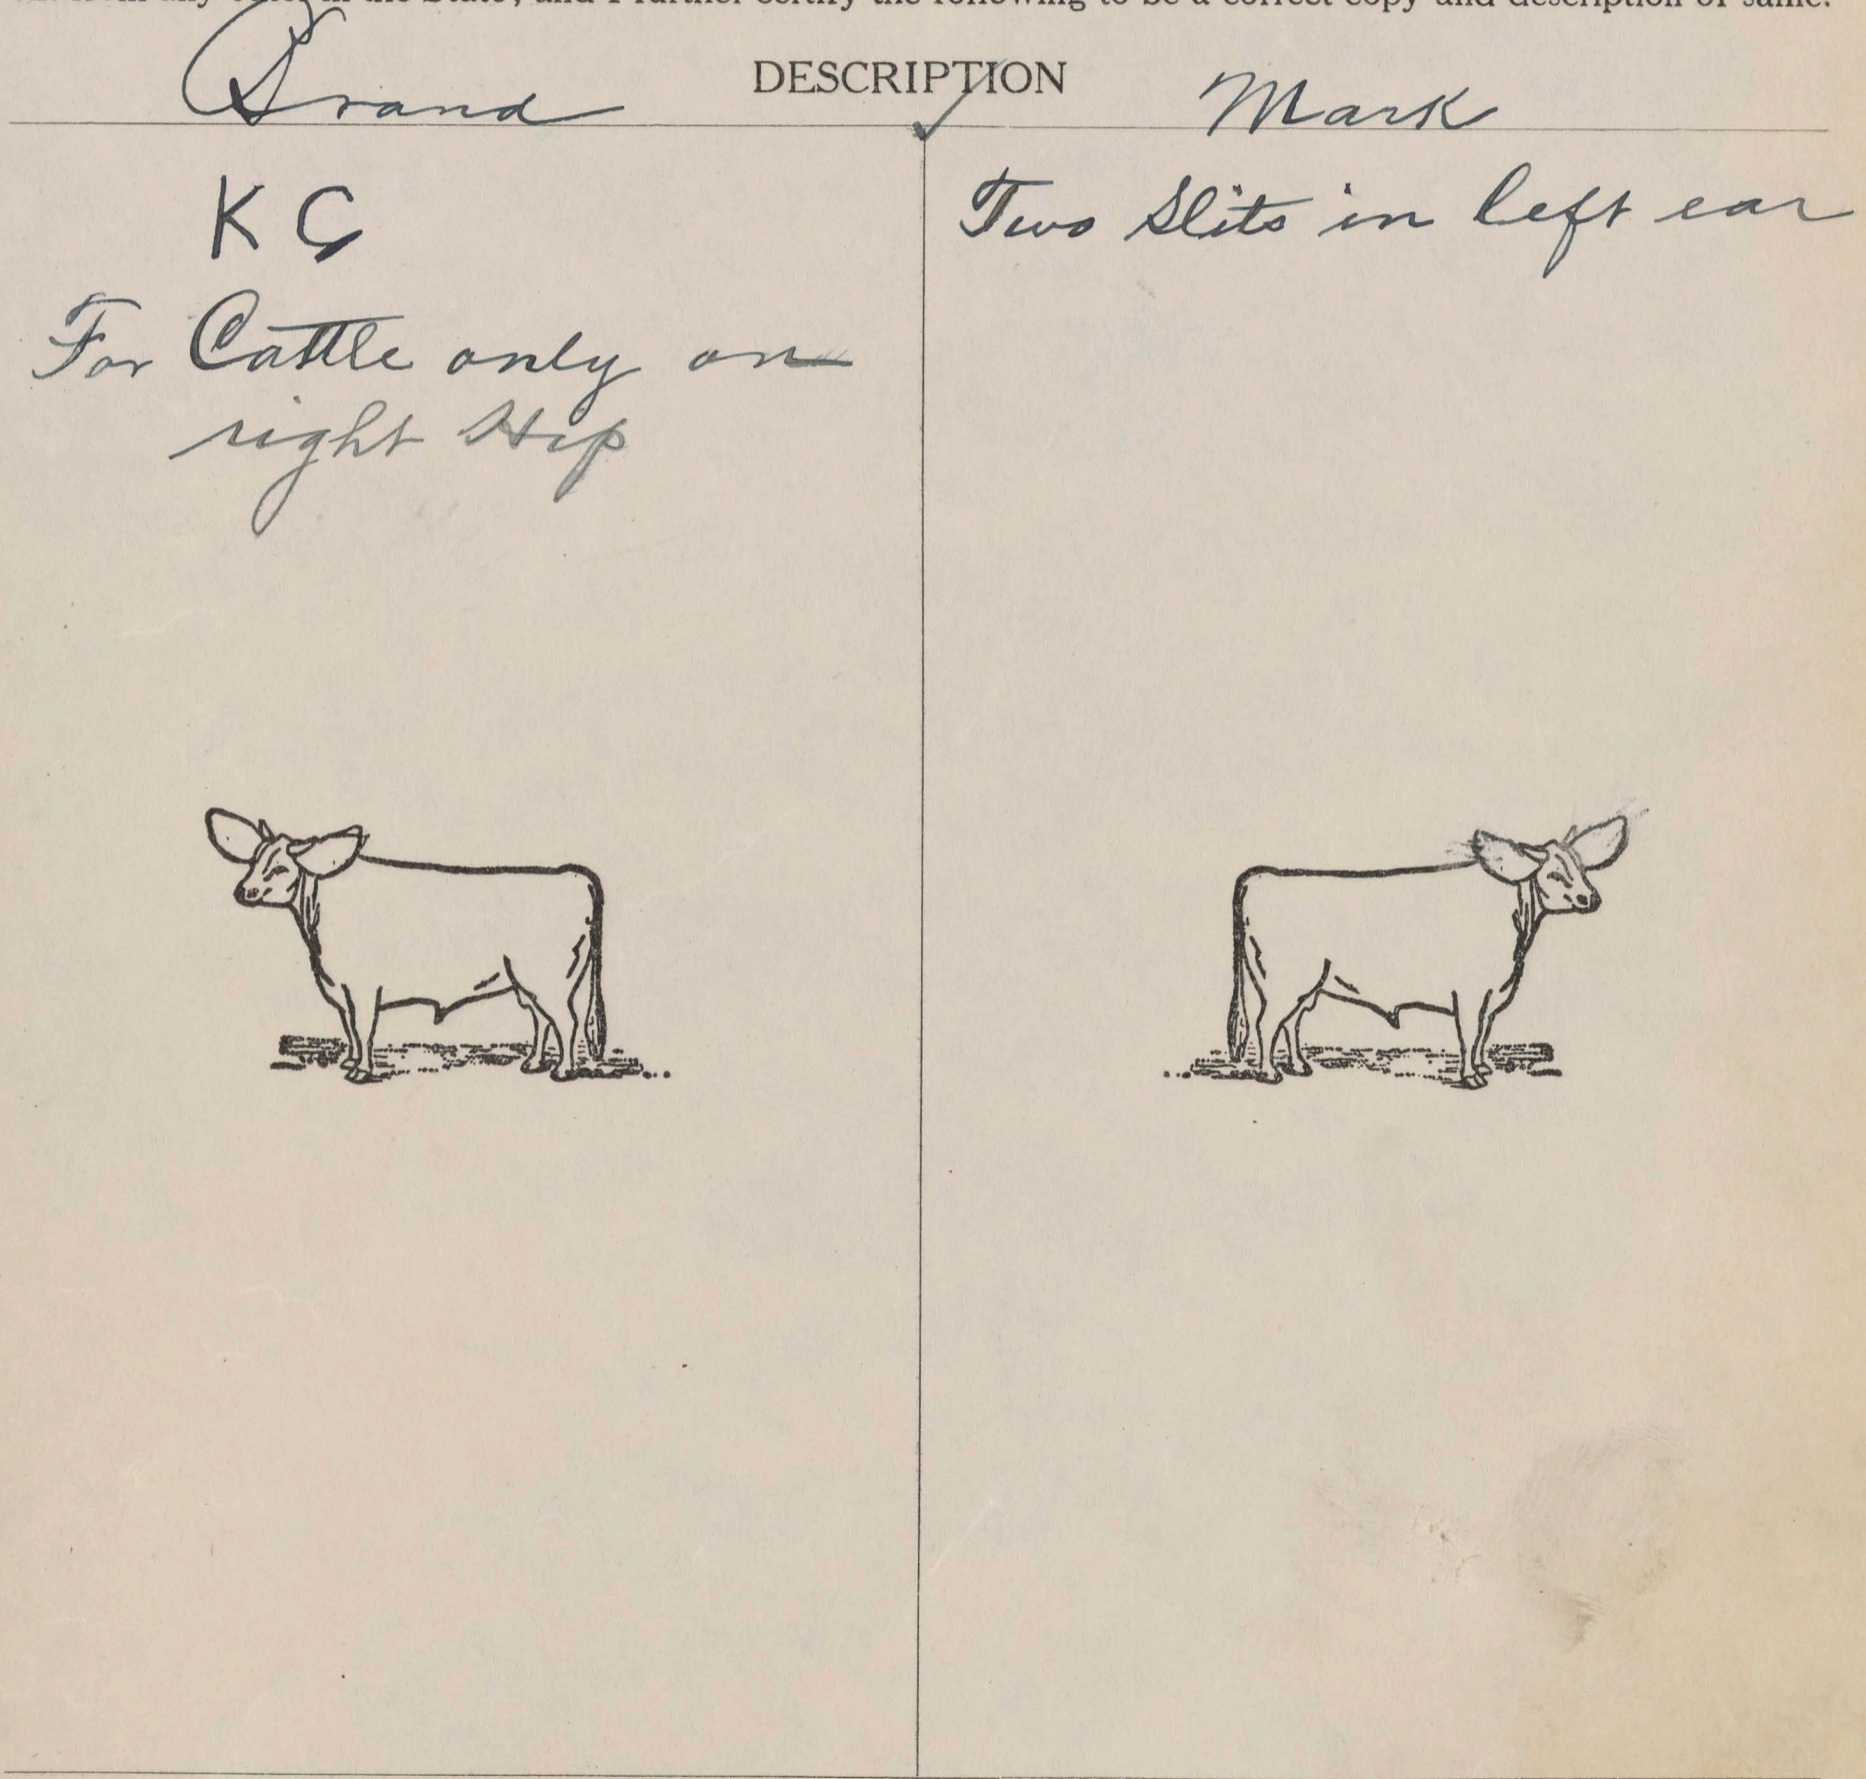 from any other in the State, and I further certify the following to be a correct copy and description of same.
DESCRIPTION
Brand
Mark
K G
For Cattle only on
right Hip
Two Slits in left ear